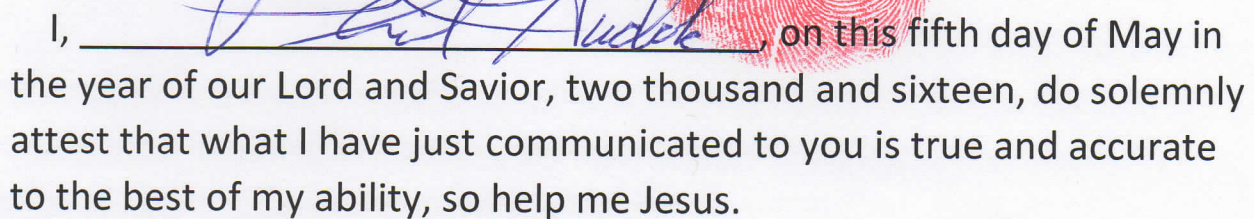 I, , on this fifth day of May in
the year of our Lord and Savior, two thousand and sixteen, do solemnly
attest that what I have just communicated to you is true and accurate
to the best of my ability, so help me Jesus.